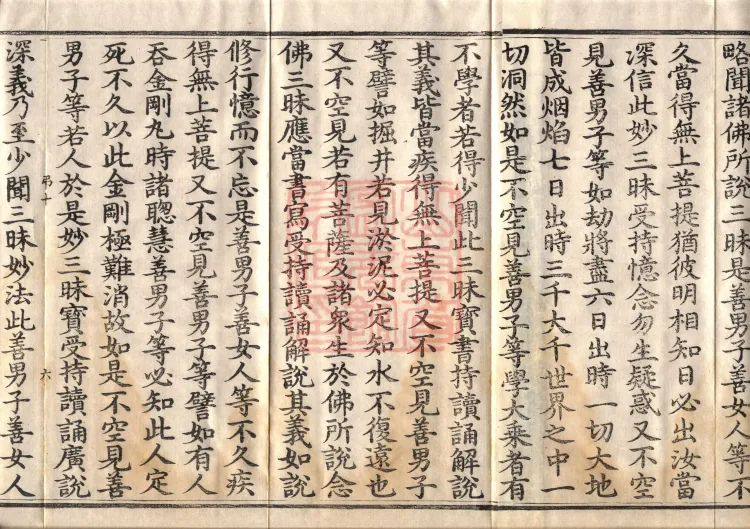 略聞諸佛所說三昧是善男子善女人等不
久當得無上菩提猶彼明相知日必出汝當
深信此妙三昧受持憶念勿生疑惑又不空
見善男子等如劫將盡六日出時一切大地
皆成烟焰七日出時三千大千世界之中一
切洞然如是不空見善男子等學大乘者有
不學者若得少聞此三昧寶書持讀誦解說
其義皆當疾得無上菩提又不空見善男子
等譬如掘井若見淤泥必定知水不復遠也
又不空見若有菩薩及諸衆生於佛所說念
佛三昧應當書寫受持讀誦解說其義如說
修行憶而不忘是善男子善女人等不久疾
得無上菩提又不空見善男子等譬如有人
吞金剛丸時諸聰慧善男子等必知此人定
死不久以此金剛極難消故如是不空見善
男子等若人於是妙三昧寶受持讀誦廣說
弔十 六
深義乃至少聞三昧妙法此善男子善女人